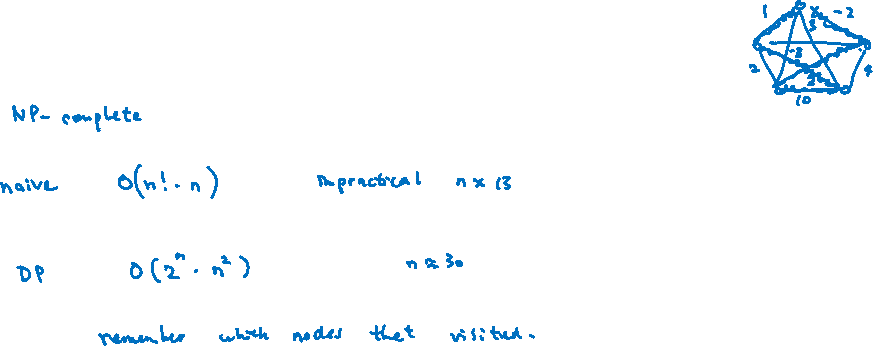 1 x -2
3
-3
2 2 4
10
NP-complete
naive O(n!·n) impractical n ≈ 13
DP O(2^n · n^2) n ≈ 30
remember which nodes that visited.